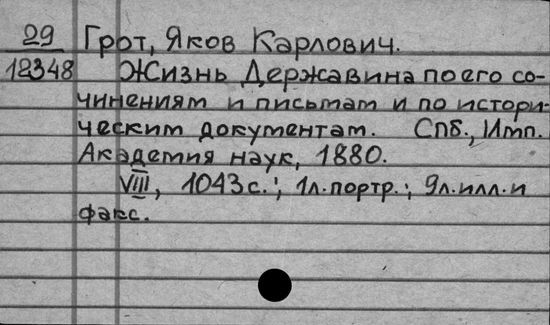 29 Грот, Яков Карлович.
12348 Жизнь Державина по его со-
чинениям и письмам и по истори-
ческим документам. Спб., Имп.
Академия наук, 1880.
VIII, 1043 с.; 1 л. портр.; 9 л. илл. и
факс.